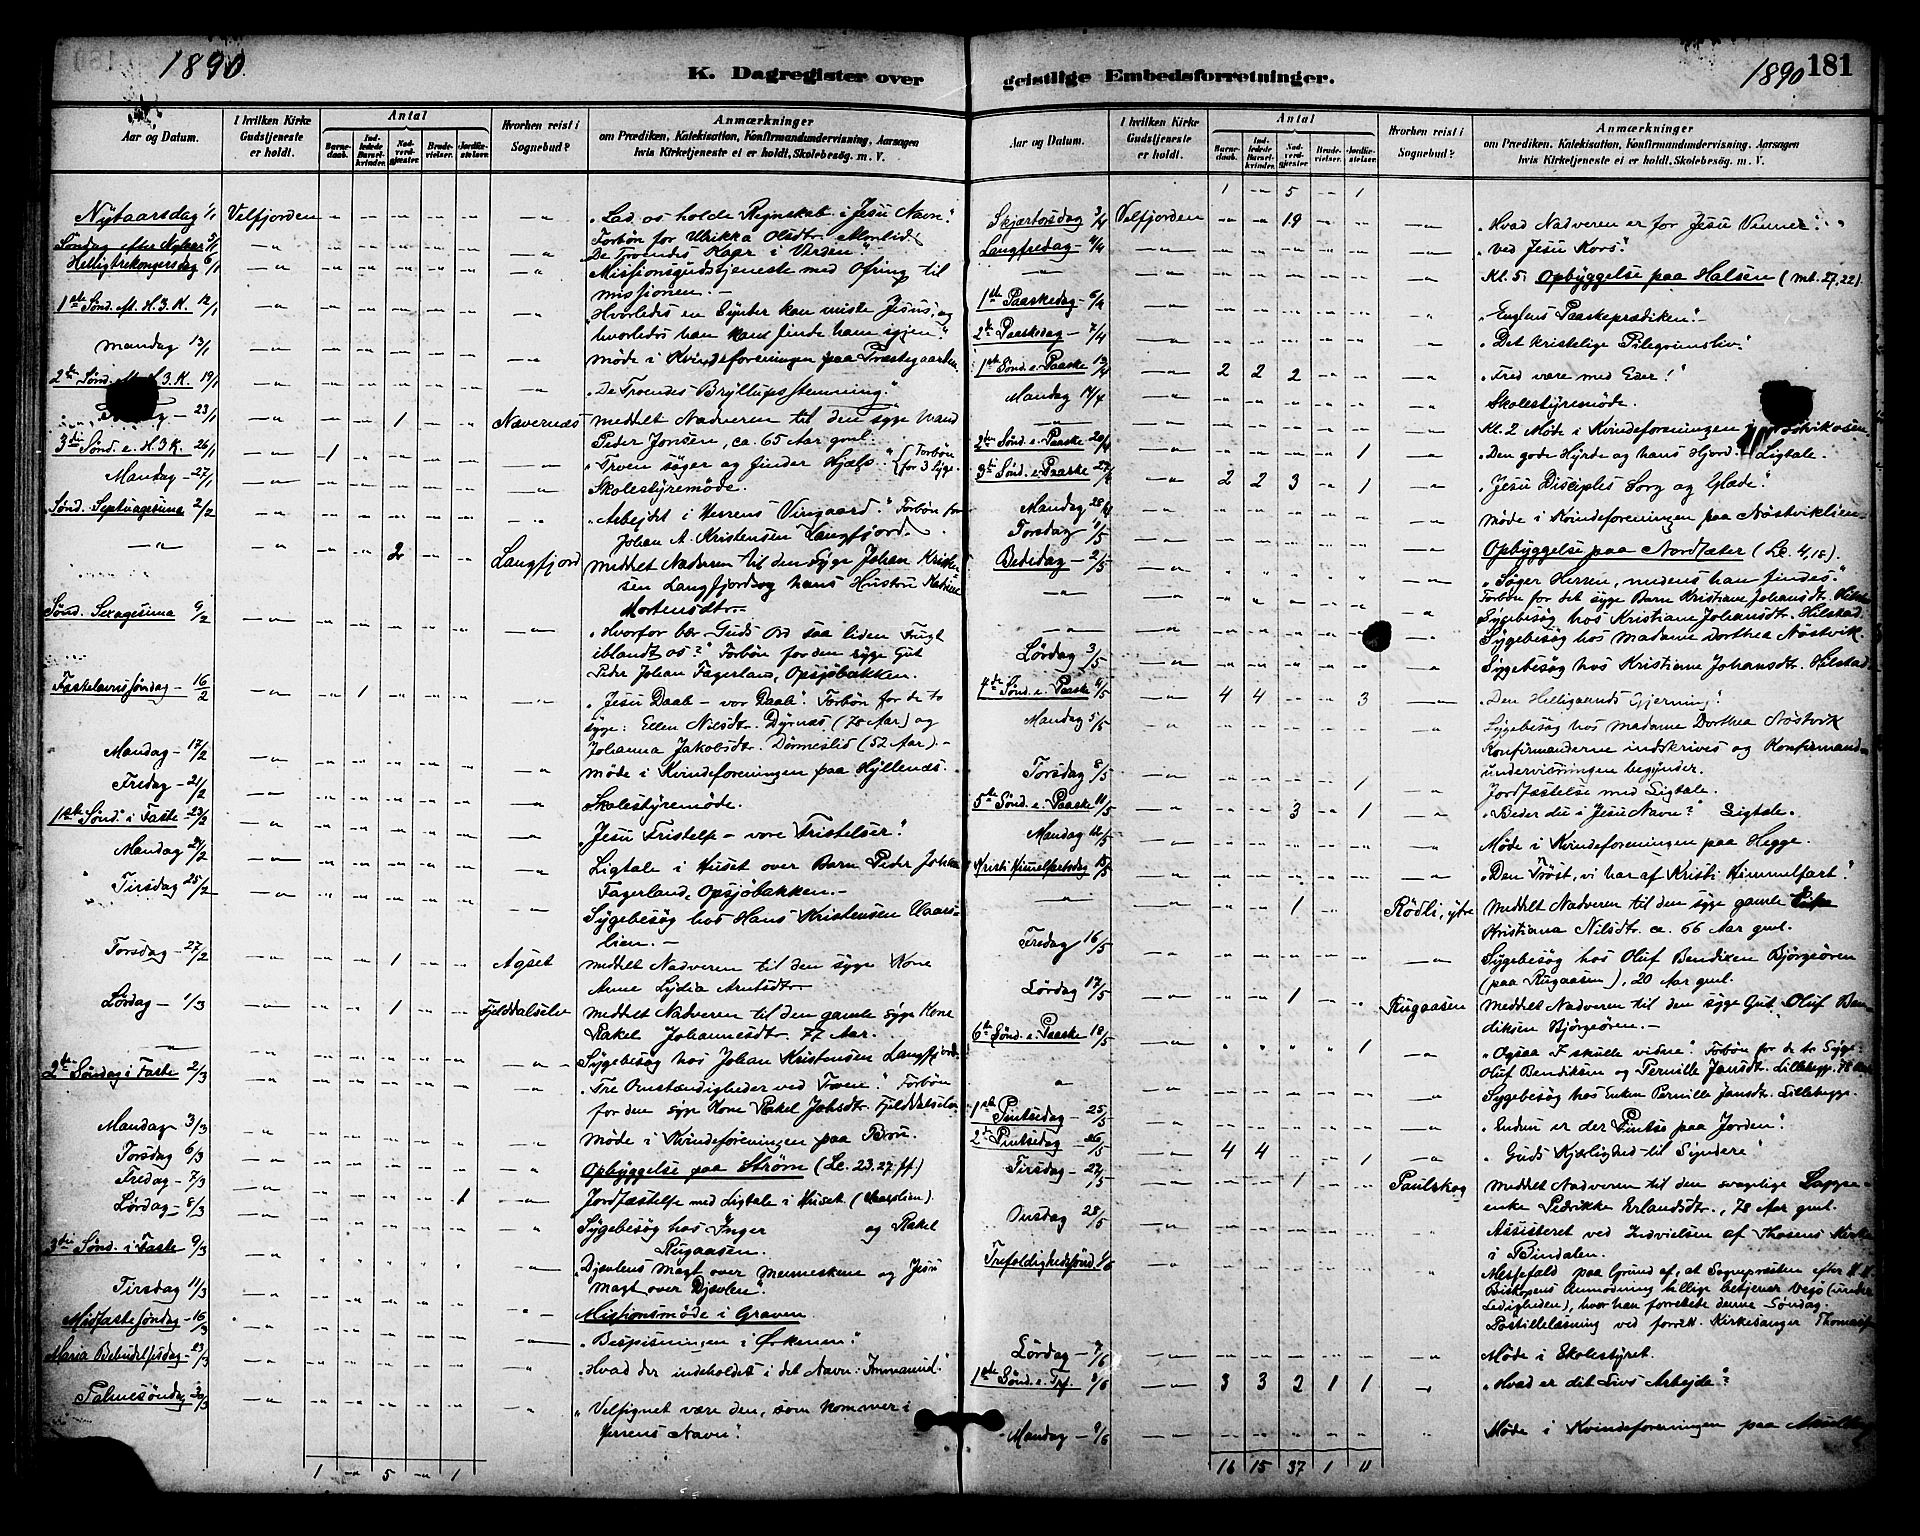 1890.
K. Dagregister over
Aar og Datum.
I hvilken Kirke Gudstjeneste er holdt.
Antal
Barnedaab.
Indledede Barselkvinder.
Nadverdgjæster.
Brudevielser.
Jordfæstelser.
Hvorhen reist i Sognebud?
Anmærkninger
om Prædiken, Katekisation, Konfirmandundervisning, Aarsagen
hvis Kirketjeneste ei er holdt, Skolebesøg. m. V.
Nytaarsdag 1/1 Velfjorden „Lad os holde Regnskab i Jesu Navn."
Forbøn for Ulrikka Olsdt.
Søndag efter Nytaar 5/1 De Troendes Kaar i Verden.
Helligtrekongersdag 6/1 Missionsgudstjeneste med Ofring til
missionen.
1ste Sønd. eft. H. 3. K. 12/1 „Hvorledes en Synder kan miste Jesus, og
hvorledes han kan finde ham igjen".
Mandag 13/1 Møde i Kvindeforeningen paa Præstegaarden.
2den Sønd. eft. H. 3. K. 19/1 „De Troendes Bryllupsstemning."
23/1 1 Navernæs meddelt Nadveren til den syge Mand
Peder Jonsen, ca. 65 Aar gml.
3die Sønd. e. H. 3 K. 26/1 1 „Troen søger og finder Hjælp." Forbøn for 3 syge.
Mandag 27/1 Skolestyremøde.
Sønd. Septuagesima 2/2 „Arbejdet i Herrens Vingaard." Forbøn for
Johan A. Kristensen Langfjord.
2 Langfjord meddelt Nadveren til den syge Johan Kristensen
Langfjord og hans Hustru
Mortensdtr.
Sønd. Sexagesima 9/2 „Hvorfor bær Guds Ord saa liden Frugt
iblandt os?" Forbøn for den syge Gut
Peder Johan Fagerland, Opsjøbakken.
Fastelavnssøndag 16/2 1 „Jesu Daab – vor Daab". Forbøn for de to
syge: Ellen Nilsdtr. Dyrnæs (78 Aar) og
Johanna Jakobsdt. (52 Aar).
Mandag 17/2 Møde i Kvindeforeningen paa Hyllenæs.
Fredag 21/2 Skolestyremøde.
1ste Sønd. i Faste 23/2 „Jesu Fristelse – vore Fristelser".
Mandag 24/2 Ligtale i Huset over Barn Peder Johan
Fagerland, Opsjøbakken.
Tirsdag 25/2 Sygebesøg hos Hans Kristensen
Torsdag 27/2 1 Agset meddelt Nadveren til den syge Kone
Anne Lydia Arntsdtr.
Lørdag 1/3 1 Fjelddalselv meddelt Nadveren til den gamle syge Kone
Rakel Johannesdt. 77 Aar.
Sygebesøg hos Johan Kristensen Langfjord.
2den Søndag i Faste 2/3 „Tre Omstændigheder ved Troen." Forbøn
for den syge Kone Rakel Johsdt. Fjelddalselv
Mandag 3/3 Møde i Kvindeforeningen paa Bru.
Torsdag 6/3 Opbyggelse paa Strøm (Lc. 23.27 ff)
Fredag 7/3 1 Jordfæstelse med Ligtale i Huset
Lørdag 8/3 Sygebesøg hos Inger og Rakel
Rugaasen.
3die Sønd. i Faste 9/3 „Djævlens Magt over Mennesken og Jesu
Magt over Djævlen".
Tirsdag 11/3 Missionsmøde i Graven
Midfastesøndag 16/3 „Bespisningen i Ørkenen".
Maria Bebudelsesdag 23/3 „Hvad der indeholdes i det Navn: Immanuel."
Palmesøndag 30/3 „Velsignet være den, som kommer i
Herrens Navn".
1 5 1
geistlige Embedsforretninger.
1890
181
Aar og Datum.
I hvilken Kirke Gudstjeneste er holdt.
Antal
Barnedaab.
Indledede Barselkvinder.
Nadverdgjæster.
Brudevielser.
Jordfæstelser.
Hvorhen reist i Sognebud?
Anmærkninger
om Prædiken. Katekisation, Konfirmandundervisning. Aarsagen
hvis Kirketjeneste ei er holdt, Skolebesøg. m. V.
1 5 1
Skjærtorsdag 3/4 Velfjorden 19 „Hvad Nadveren er for Jesu Venner".
Langfredag 4/4 „Ved Jesu Kors".
Kl. 5. Opbyggelse paa Halsen (mt. 27,22).
1ste Paaskedag 6/4 „Englens Paaskeprædiken".
2den Paaskedag 7/4 „Det kristelige Pilegrimsliv".
1ste Sønd. e. Paaske 13/4 2 2 2 „Fred være med Eder!"
Mandag 14/4 Skolestyremøde.
Kl. 2 Møde i Kvindeforeningen
2den Sønd. e. Paaske 20/4 1 „Den gode Hyrde og hans Hjord. Ligtale.
3die Sønd. e. Paaske 27/4 2 2 3 1 „Jesu Disciples Sorg og Glæde".
Mandag 28/4 Møde i Kvindeforeningen paa Nøstviklien
Torsdag 1/5 Opbyggelse paa Nordsæter (Lc. 4,18).
Bededag 2/5 „Søger Herren, medens han findes".
Forbøn for det syge Barn Kristiane Johansdt. Hilstad
Sygebesøg hos Kristiane Johansdt. Hilstad.
Sygebesøg hos Madame Dorthea Nøstvik.
Lørdag 3/5 Sygebesøg hos Kristiane Johansdt. Hilstad
4de Sønd. e. Paaske 4/5 4 4 3 „Den Helligaands Gjerning".
Mandag 5/5 Sygebesøg hos Madame Dorthea Nøstvik
Konfirmanderne indskrives og Konfirmand-
undervisningen begynder.
Torsdag 8/5 1 Jordfæstelse med Ligtale.
5te Sønd. e. Paaske 11/5 3 1 „Beder du i Jesu Navn?" Ligtale.
Mandag 12/5 Møde i Kvindeforeningen paa Hegge.
Kristi Himmelfartsdag 15/5 „Den Trøst, vi har af Kristi Himmelfart".
1 Rødli, ytre Meddelt Nadveren til den syge gamle Enke
Kristiana Nilsdtr. ca. 66 Aar gml.
Fredag 16/5 Sygebesøg hos Oluf Bendiksen Bjørgeøren
(paa Rugaasen), 20 Aar gml.
Lørdag 17/5 1 Rugaasen Meddelt Nadveren til den syge Gut Oluf Ben-
diksen Bjørgeøren.
6te Sønd. e. Paaske 18/5 1 „Ogsaa I skulle vidne". Forbøn for de to syge:
Oluf Bendiksen og Pernille Jansdt. Lillebygg.
Sygebesøg hos Enken Pernille Jansdt. Lillebygge.
1ste Pintsedag 25/5 „Endnu er der Pintse paa Jorden".
2den Pintsedag 26/5 4 4 1 „Guds Kjærlighed til Syndere"
Tirsdag 27/5 1 Paulskog Meddelt Nadveren til den svagelige Lappe-
enke Pedrikke Erlandsdt., 78 Aar gml.
Onsdag 28/5 Assisteret ved Indvielsen af Thosens Kirke
i Bindalen.
Trefoldighedssønd. 1/6 Messefald paa Grund af, at Sognepræsten efter H. H.
Biskopens Anmodning tillige betjener Vegø (under
Ledigheden), hvor han forrettede denne Søndag.
Postillelæsning ved forrett. Kirkesanger Thomassen
Lørdag 7/6 Møde i Skolestyret.
1ste Sønd. e. Tref. 8/6 3 3 2 1 1 „Hvad er dit Livs Arbejde?"
Mandag 9/6 Møde i Kvindeforeningen paa
16 15 37 1 11